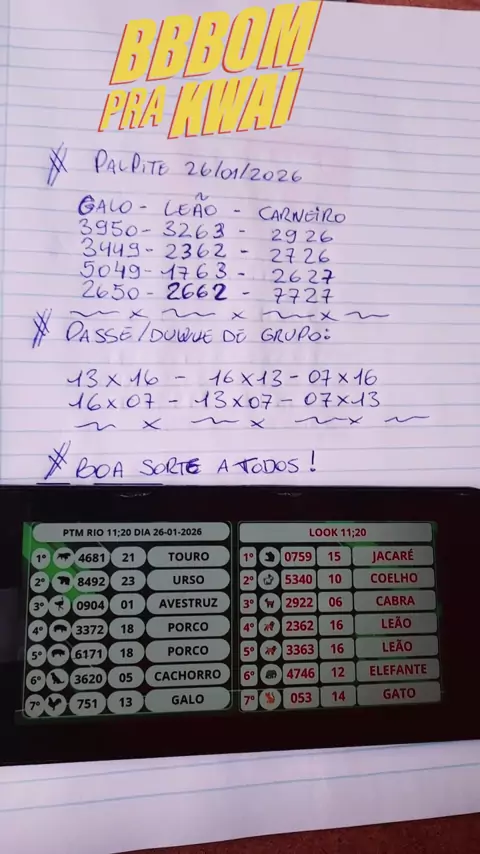 BBBOM
PRA KWAI
PALPITE 26/01/2026
GALO - LEÃO - CARNEIRO
3950 - 3263 - 2926
3449 - 2362 - 2726
5049 - 1763 - 2627
2650 - 2662 - 7727
PASSE/DUQUE DE GRUPO:
13 x 16 - 16 x 13 - 07 x 16
16 x 07 - 13 x 07 - 07 x 13
BOA SORTE A TODOS!
PTM RIO 11;20 DIA 26-01-2026
1º 4681 21 TOURO
2º 8492 23 URSO
3º 0904 01 AVESTRUZ
4º 3372 18 PORCO
5º 6171 18 PORCO
6º 3620 05 CACHORRO
7º 751 13 GALO
LOOK 11;20
1º 0759 15 JACARÉ
2º 5340 10 COELHO
3º 2922 06 CABRA
4º 2362 16 LEÃO
5º 3363 16 LEÃO
6º 4746 12 ELEFANTE
7º 053 14 GATO